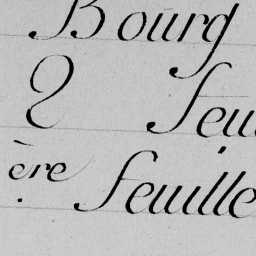 Bourg
2 feu
ère feuille